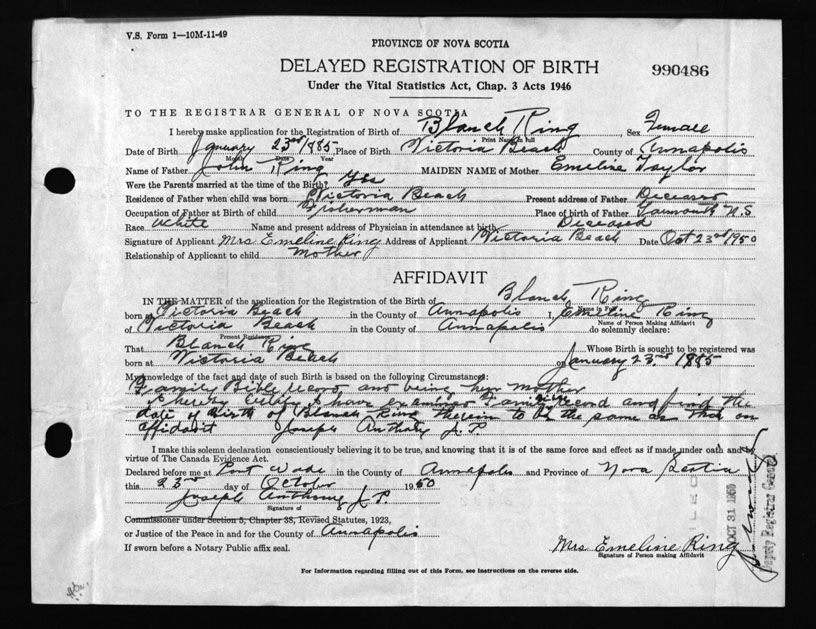 V.S. Form 1—10M-11-49
PROVINCE OF NOVA SCOTIA
DELAYED REGISTRATION OF BIRTH
990486
Under the Vital Statistics Act, Chap. 3 Acts 1946
TO THE REGISTRAR GENERAL OF NOVA SCOTIA
I hereby make application for the Registration of Birth of Blanch Ring Sex Female
Print Name in full
Date of Birth January 23rd 1885 Place of Birth Victoria Beach County of Annapolis
Month Date Year
Name of Father John Ring MAIDEN NAME of Mother Emeline Taylor
Were the Parents married at the time of the Birth? Yes
Residence of Father when child was born Victoria Beach Present address of Father Deceased
Occupation of Father at Birth of child Fisherman Place of birth of Father Yarmouth N.S
Race White Name and present address of Physician in attendance at birth Deceased
Signature of Applicant Mrs Emeline Ring Address of Applicant Victoria Beach Date Oct 23rd 1950
Relationship of Applicant to child Mother
AFFIDAVIT
IN THE MATTER of the application for the Registration of the Birth of Blanch Ring
Name in Full
born at Victoria Beach in the County of Annapolis I, Emeline Ring
Name of Person Making Affidavit
of Victoria Beach in the County of Annapolis do solemnly declare:
Present Residence
That Blanch Ring Whose Birth is sought to be registered was
born at Victoria Beach on January 23rd 1885
My knowledge of the fact and date of such Birth is based on the following Circumstances:
Family Bible record and being her mother
I hereby certify I have examined Family Bible record and find the
date of birth of Blanch Ring therein to be the same as that on
affidavit Joseph Anthony J.P.
I make this solemn declaration conscientiously believing it to be true, and knowing that it is of the same force and effect as if made under oath and by
virtue of The Canada Evidence Act.
Declared before me at Port Wade in the County of Annapolis and Province of Nova Scotia
this 23rd day of October 1950
Joseph Anthony J.P.
Signature of
Commissioner under Section 5, Chapter 38, Revised Statutes, 1923,
or Justice of the Peace in and for the County of Annapolis
If sworn before a Notary Public affix seal.
Mrs Emeline Ring
Signature of Person making Affidavit
FILED
OCT 31 1950
Deputy Registrar General
For Information regarding filling out of this Form, see instructions on the reverse side.